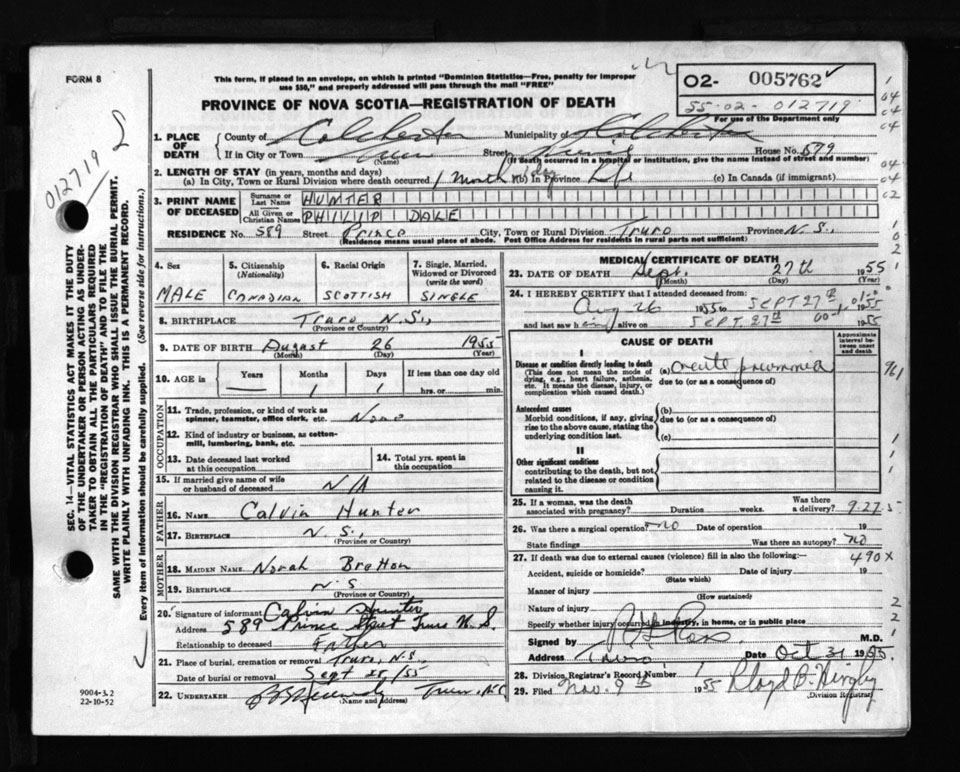 FORM 8
This form, if placed in an envelope, on which is printed "Dominion Statistics—Free, penalty for improper
use $50," and properly addressed will pass through the mail "FREE"
O2- 005762
55-02-012719
For use of the Department only
PROVINCE OF NOVA SCOTIA—REGISTRATION OF DEATH
012719
SEC. 14—VITAL STATISTICS ACT MAKES IT THE DUTY
OF THE UNDERTAKER OR PERSON ACTING AS UNDER-
TAKER TO OBTAIN ALL THE PARTICULARS REQUIRED
IN THE "REGISTRATION OF DEATH" AND TO FILE THE
SAME WITH THE DIVISION REGISTRAR WHO SHALL ISSUE THE BURIAL PERMIT.
WRITE PLAINLY WITH UNFADING INK. THIS IS A PERMANENT RECORD.
Every item of information should be carefully supplied. (See reverse side for instructions.)
1. PLACE OF DEATH
County of Colchester Municipality of Colchester
If in City or Town Truro Street Prince House No. 589
(Name) (If death occurred in a hospital or institution, give the name instead of street and number)
2. LENGTH OF STAY (in years, months and days)
(a) In City, Town or Rural Division where death occurred 1 Month 1 day (b) In Province Life (c) In Canada (if immigrant)
3. PRINT NAME OF DECEASED
Surname or Last Name HUNTER
All Given or Christian Names PHILLIP DALE
RESIDENCE No. 589 Street Prince City, Town or Rural Division Truro Province N.S.,
(Residence means usual place of abode. Post Office Address for residents in rural parts not sufficient)
4. Sex MALE
5. Citizenship (Nationality) CANADIAN
6. Racial Origin SCOTTISH
7. Single, Married, Widowed or Divorced (write the word) SINGLE
8. BIRTHPLACE Truro N.S.,
(Province or Country)
9. DATE OF BIRTH August 26 1955
(Month) (Day) (Year)
10. AGE in Years Months 1 Days 1 If less than one day old
hrs. or min.
OCCUPATION
11. Trade, profession, or kind of work as
spinner, teamster, office clerk, etc. None
12. Kind of industry or business, as cotton-
mill, lumbering, bank, etc.
13. Date deceased last worked
at this occupation
14. Total yrs. spent in
this occupation
15. If married give name of wife
or husband of deceased N/A
FATHER
16. NAME Calvin Hunter
17. BIRTHPLACE N.S.,
(Province or Country)
MOTHER
18. MAIDEN NAME Norah Bretton
19. BIRTHPLACE N.S
(Province or Country)
20. Signature of informant Calvin Hunter
Address 589 Prince Street Truro N.S.
Relationship to deceased Father
21. Place of burial, cremation or removal Truro, N.S.
Date of burial or removal Sept 28/55
22. UNDERTAKER Truro, N.S
(Name and Address)
9004-3.2
22-10-52
MEDICAL CERTIFICATE OF DEATH
23. DATE OF DEATH Sept. 27th 1955
(Month) (Day) (Year)
24. I HEREBY CERTIFY that I attended deceased from
Aug 26 1955 to SEPT 27th 1955
and last saw h alive on SEPT. 27th 1955
CAUSE OF DEATH
Approximate interval between onset and death
I
Disease or condition directly leading to death
(This does not mean the mode of
dying, e.g., heart failure, asthenia,
etc. It means the disease, injury, or
complication which caused death.)
(a) Acute pneumonia
due to (or as a consequence of)
Antecedent causes
Morbid conditions, if any, giving
rise to the above cause, stating the
underlying condition last.
(b)
due to (or as a consequence of)
(c)
II
Other significant conditions
contributing to the death, but not
related to the disease or condition
causing it.
25. If a woman, was the death
associated with pregnancy? Duration weeks. Was there a delivery?
9-27-5
26. Was there a surgical operation? No Date of operation 19
State findings Was there an autopsy? No
27. If death was due to external causes (violence) fill in also the following:—
490X
Accident, suicide or homicide? Date of injury 19
(State which)
Manner of injury
(How sustained)
Nature of injury
Specify whether injury occurred in industry, in home, or in public place
Signed by Ross M.D.
Address Truro Date Oct 31 1955.
28. Division Registrar's Record Number
29. Filed Nov. 9th 1955
Division Registrar